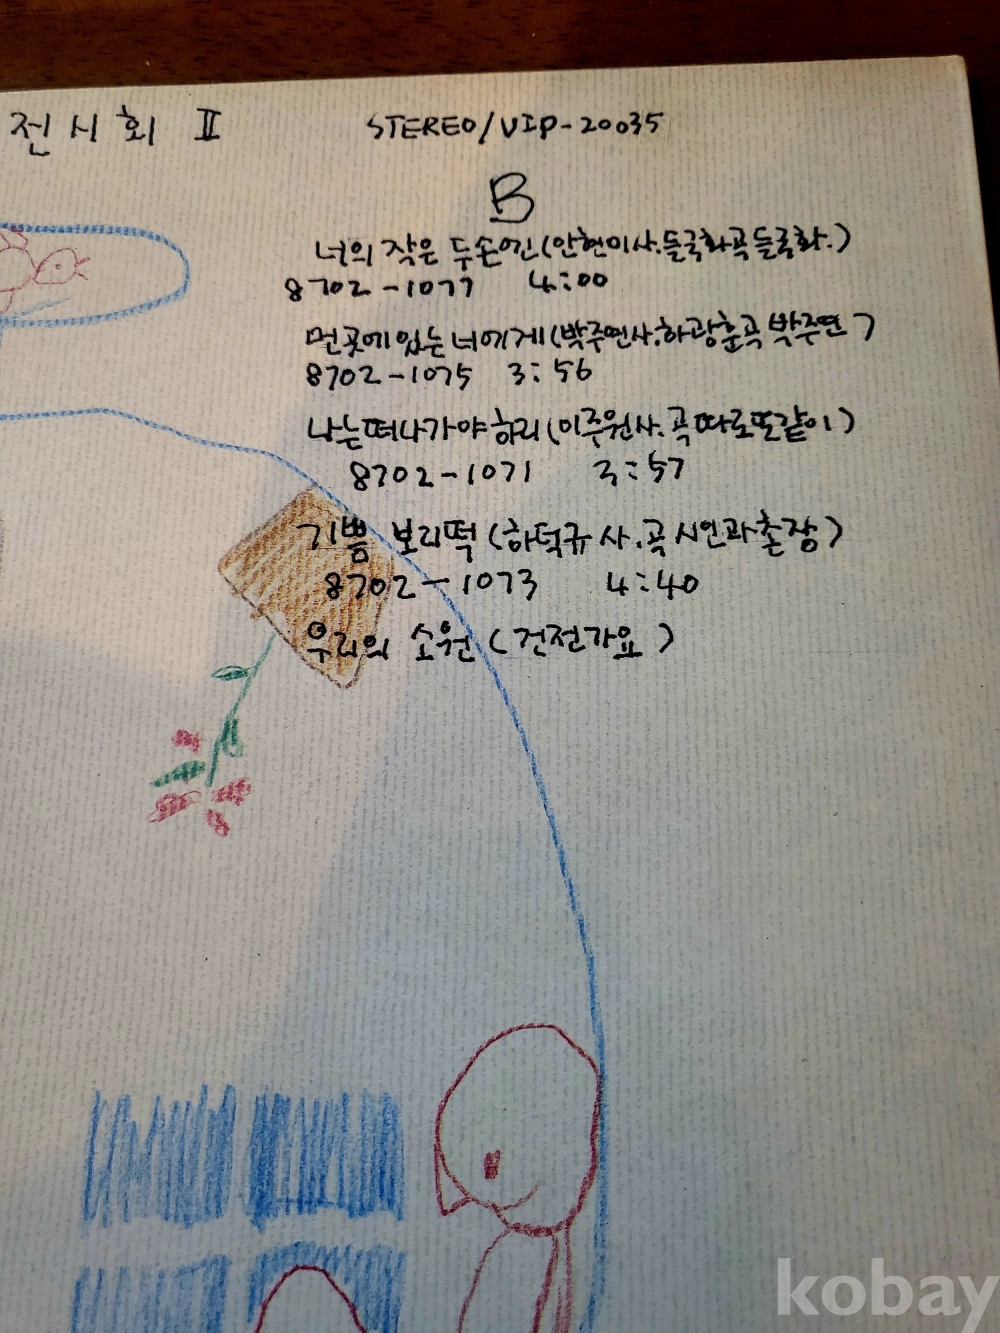 전시회 Ⅱ STEREO/VIP-20035
B
너의 작은 두손엔(안현미사.들국화곡들국화.)
8702-1077 4:00
먼곳에있는너에게(박주연사.하광훈곡 박주연)
8702-1075 3:56
나는떠나가야하리(이주원사.곡따로또같이)
8702-1071 3:57
기쁨 보리떡(하덕규사.곡시인과촌장)
8702-1073 4:40
우리의 소원(건전가요)
kobay